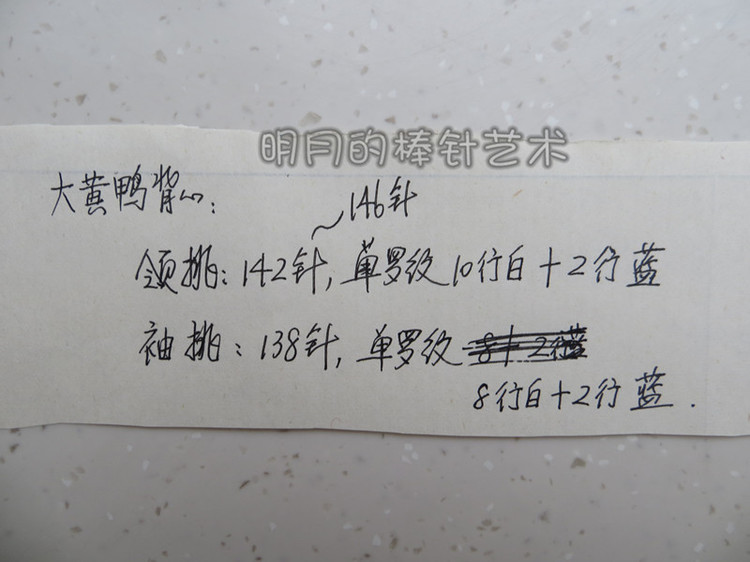 明月的棒针艺术
大黄鸭背心：
146针
领挑：142针，单罗纹10行白+2行蓝
袖挑：138针，单罗纹
8行白+2行蓝.